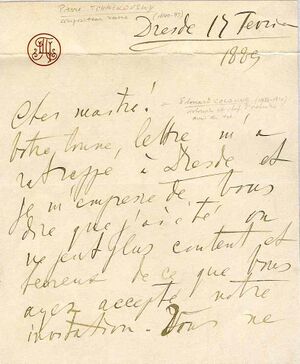 Pierre TCHAIKOVSKY
compositeur russe (1840-93)
Dresde 17 Fevrier
1889
Cher maître!
Edouard COLONNE
Votre bonne lettre m'a
rattrappé à Dresde et
je m'empresse de vous
dire que j'ai été on
ne peut plus content et
heureux de ce que Vous
ayez accepté notre
invitation. Vous ne